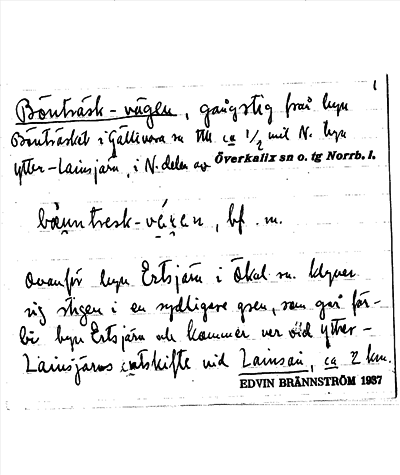 1
Bönträsk-vägen, gångstig från byn
Bönträsket i Gällivara sn till ca 1/2 mil N. byn
Ytter-Lainsjärv, i N. delen av Överkalix sn o. tg Norrb. l.
bf. m.
Ovanför byn Ertsjärv i Ökal. sn. klyver
sig stigen i en sydligare gren, som går för-
bi byn Ertsjärv och kommer ner vid Ytter-
Lainsjärvs utskifte vid Lainsån, ca 2 km.
EDVIN BRÄNNSTRÖM 1937